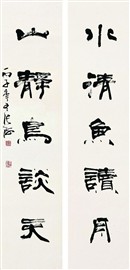 水清魚讀月
山靜鳥談天
丙子年